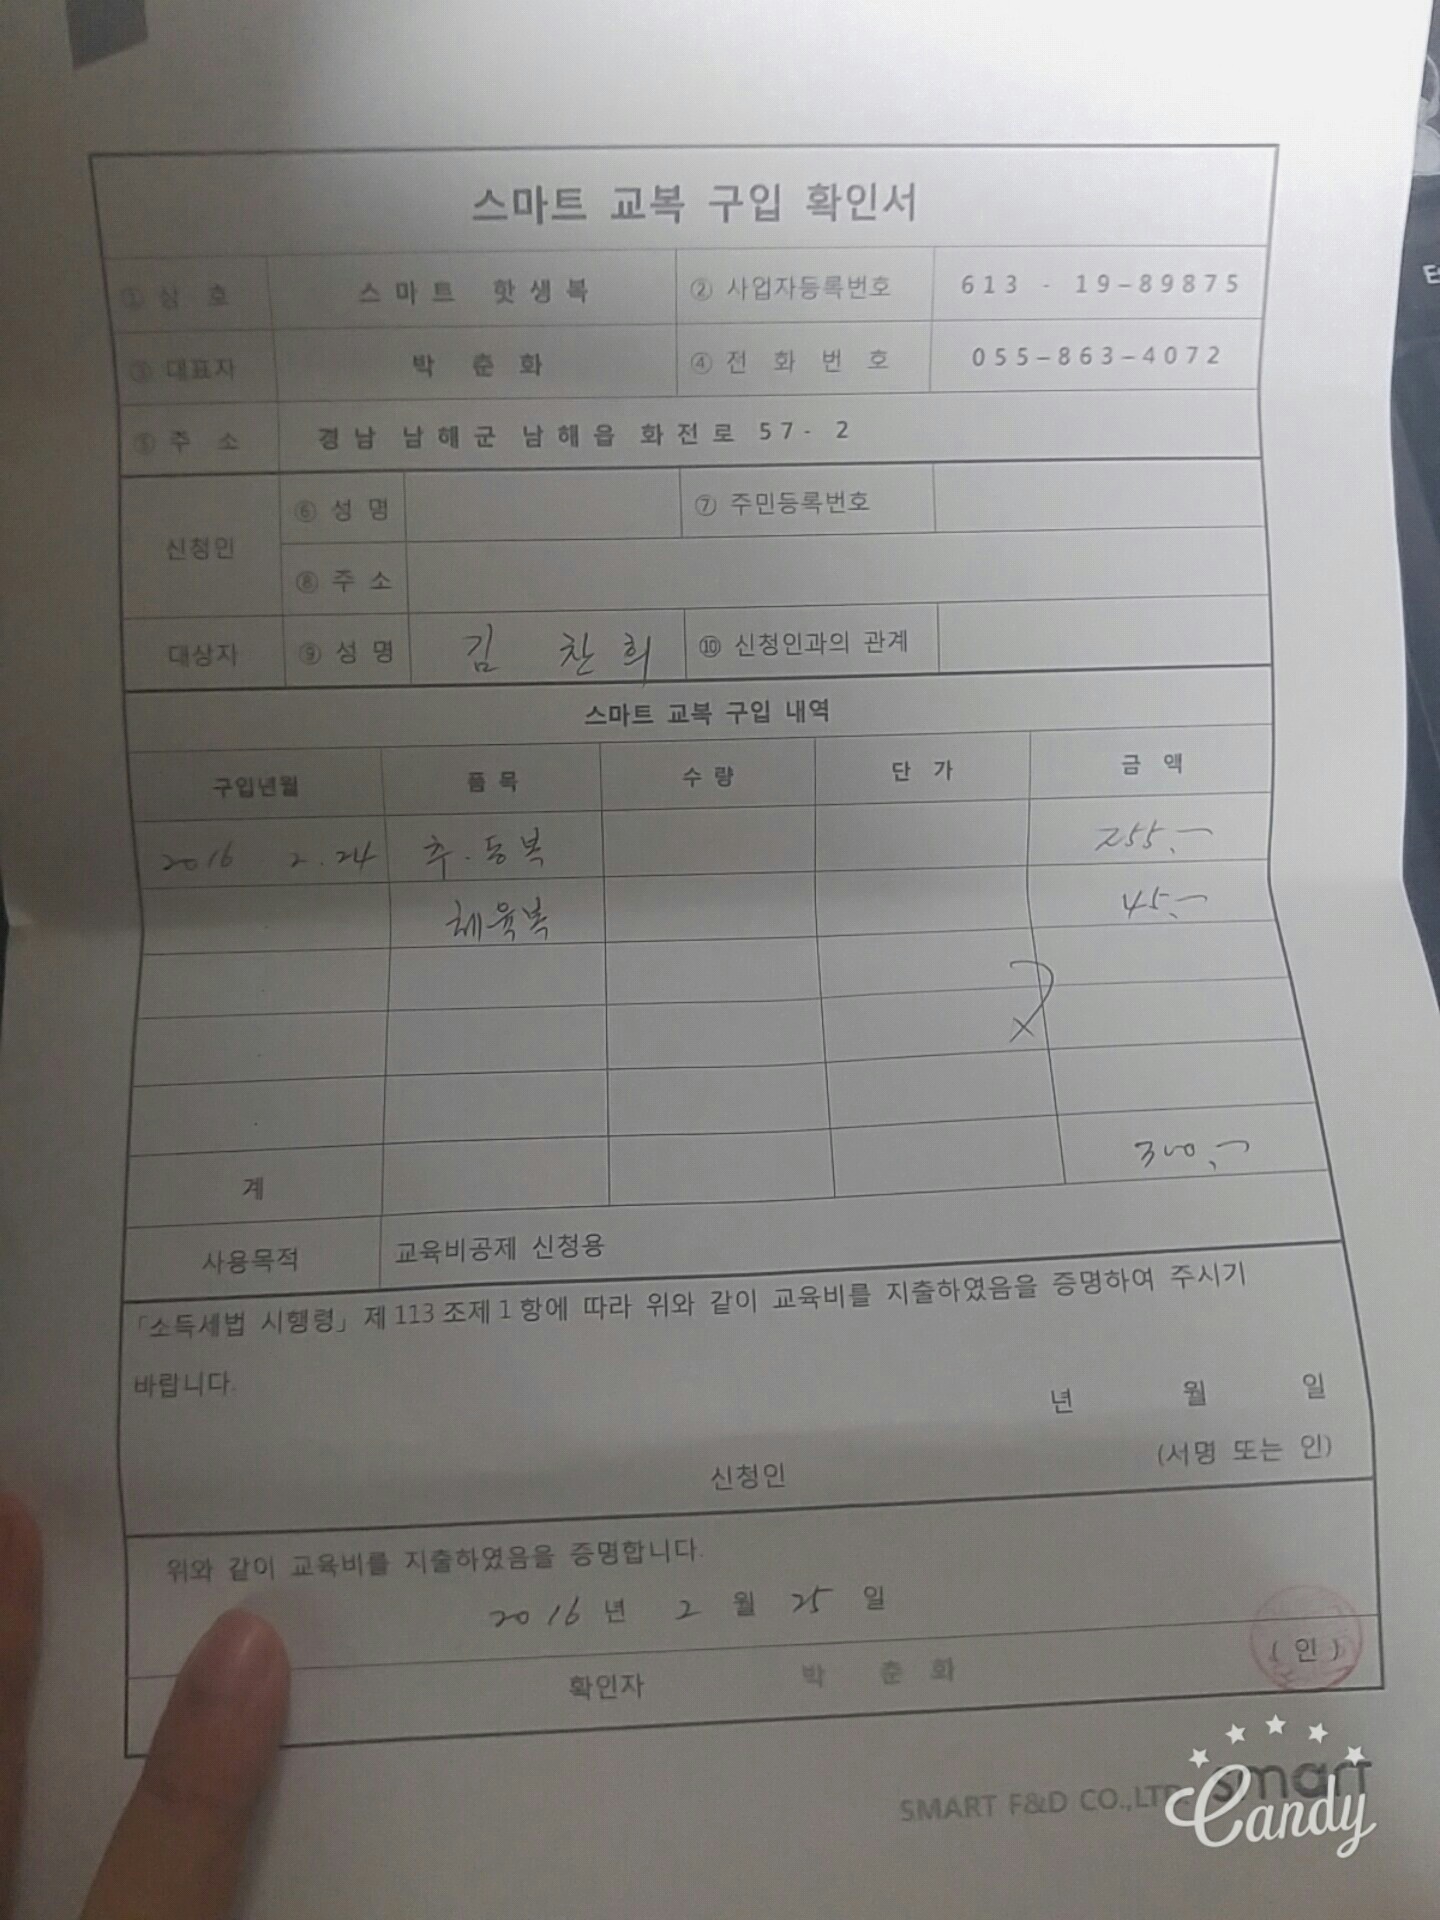 스마트 교복 구입 확인서
① 상 호 스마트 핫생복 ② 사업자등록번호 613 - 19-89875
③ 대표자 박 춘 화 ④ 전 화 번 호 055-863-4072
⑤ 주 소 경남 남해군 남해읍 화전로 57- 2
신청인 ⑥ 성 명 ⑦ 주민등록번호
⑧ 주 소
대상자 ⑨ 성 명 김 찬 희 ⑩ 신청인과의 관계
스마트 교복 구입 내역
구입년월 품 목 수 량 단 가 금 액
2016 2.24 추.동복 255.-
체육복 45.-
계 300.-
사용목적 교육비공제 신청용
「소득세법 시행령」제 113 조제 1 항에 따라 위와 같이 교육비를 지출하였음을 증명하여 주시기
바랍니다.
년 월 일
신청인 (서명 또는 인)
위와 같이 교육비를 지출하였음을 증명합니다.
2016 년 2 월 25 일
확인자 박 춘 화 ( 인 )
SMART F&D CO.,LTD. smart
Candy